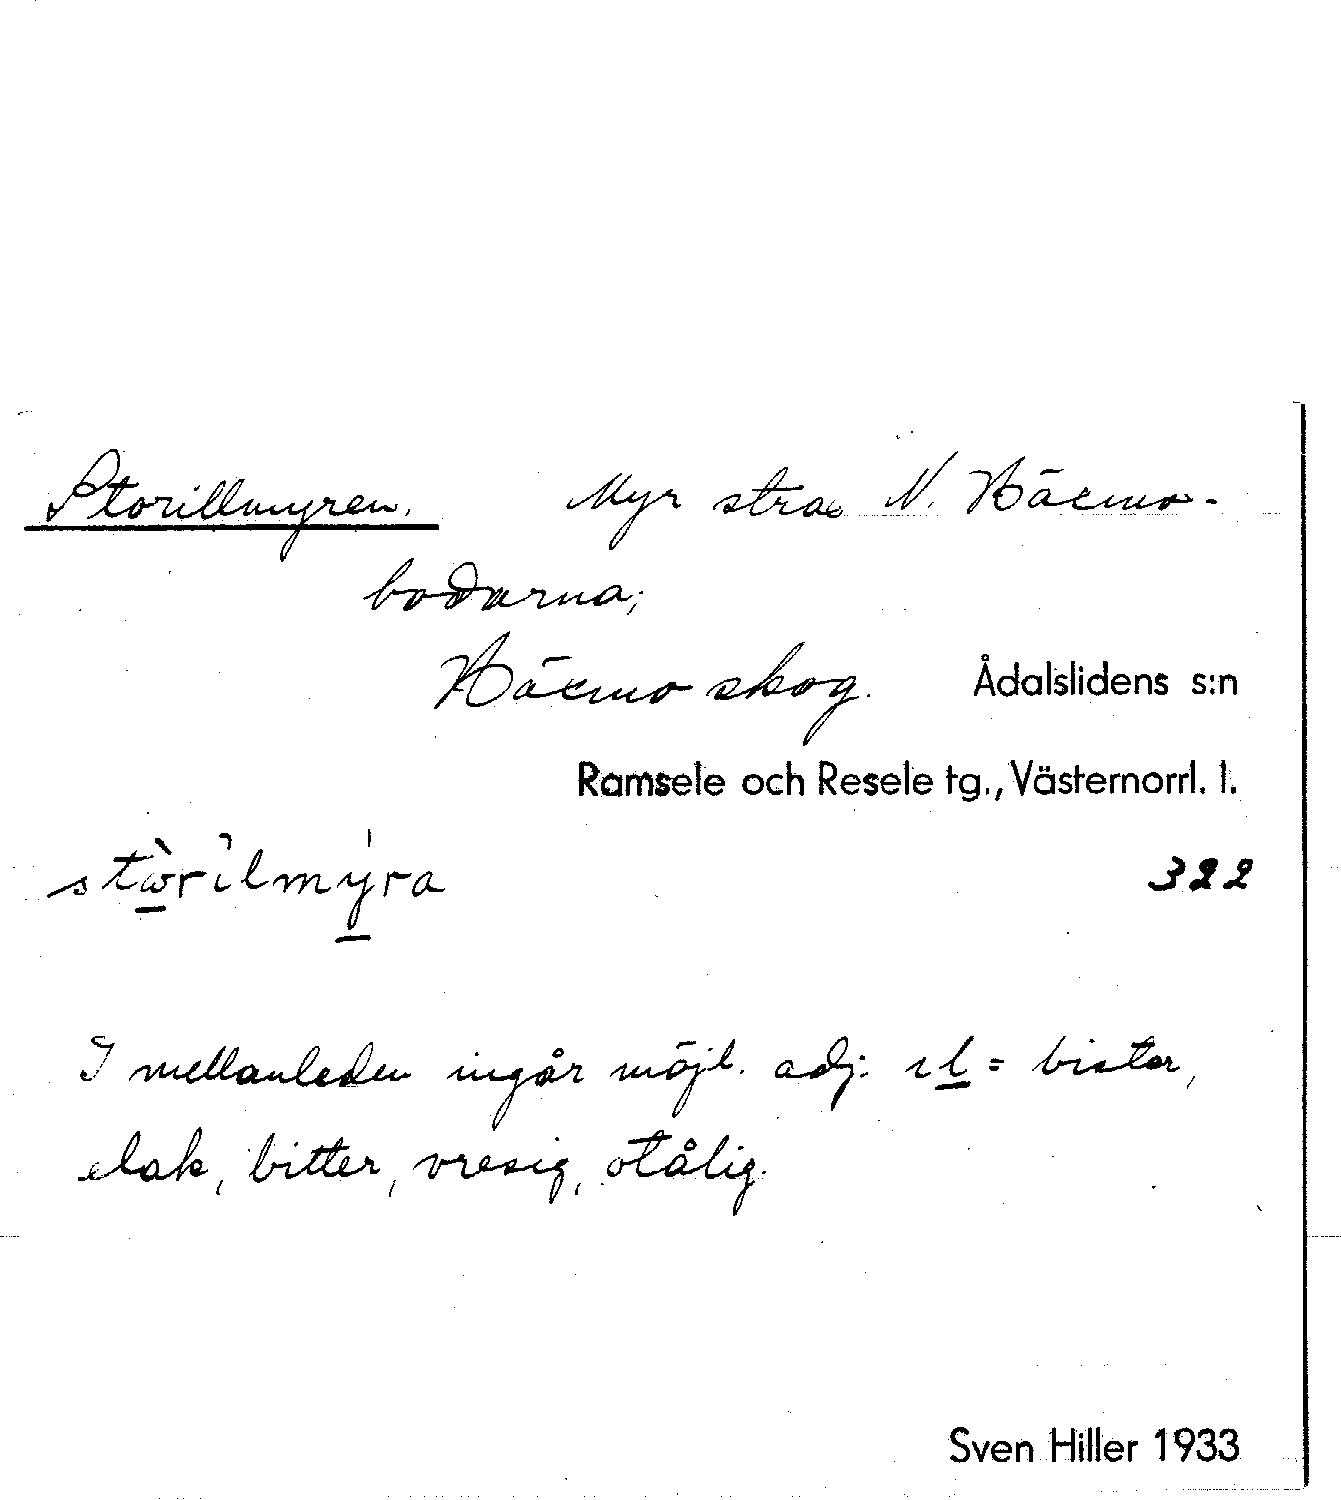 Storillmyren. Myr strax N. Bäcmo-
bodarna;
Bäcmo skog. Ådalslidens s:n
Ramsele och Resele tg., Västernorrl. l.
stὼrìlmýra 322
I mellanleden ingår möjl. adj: ıl = bister,
elak, bitter, vresig, otålig.
Sven Hiller 1933